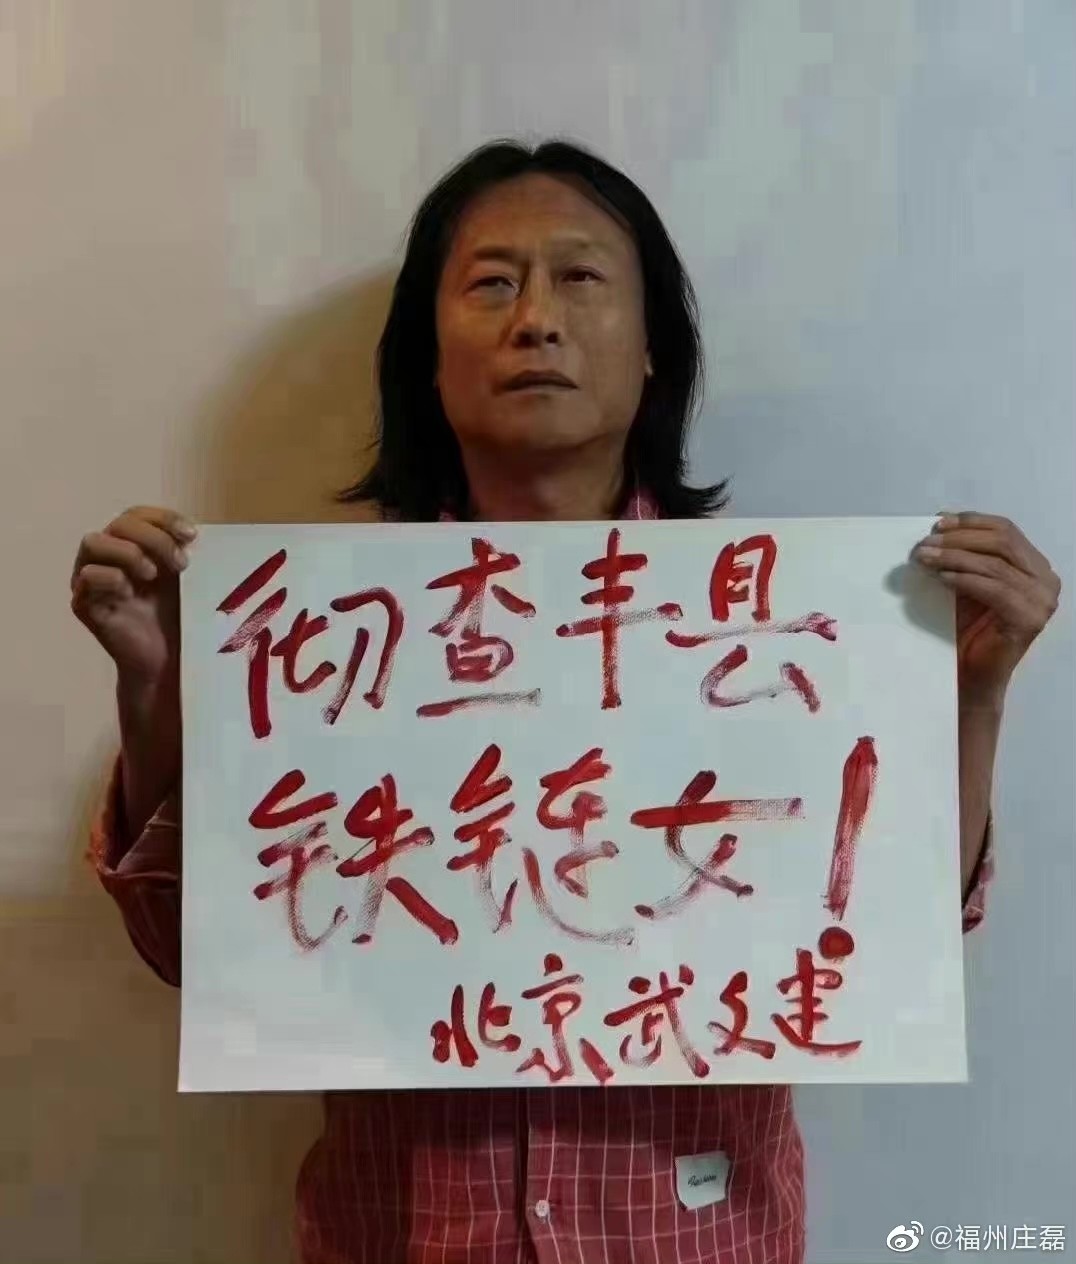 彻查丰县
铁链女！
北京武文建
@福州庄磊